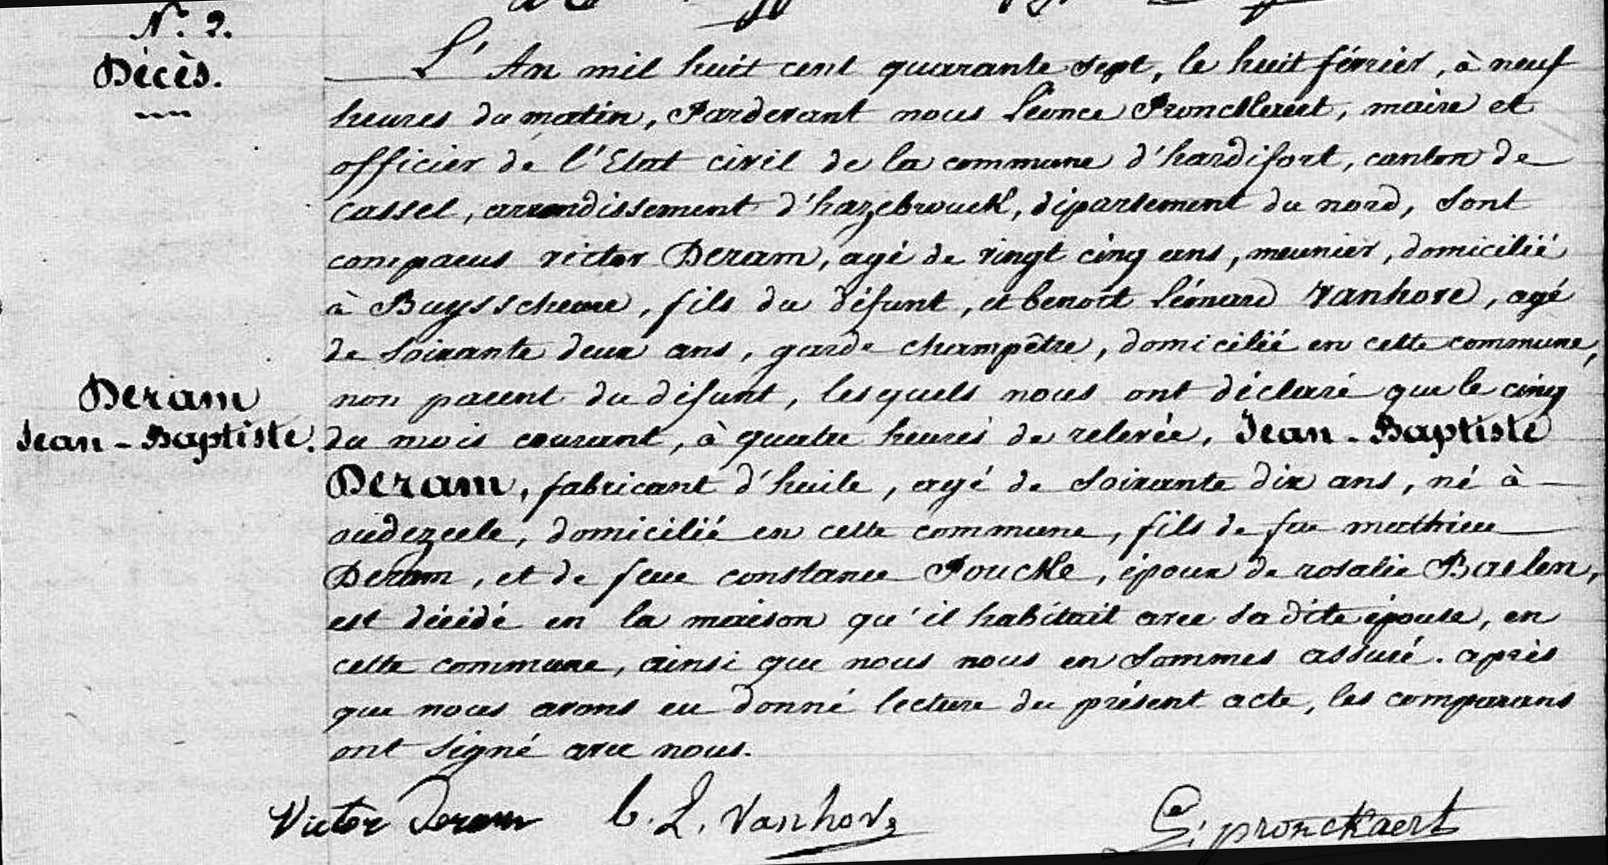 N.° 2.
Décès.
L'An mil huit cent quarante sept, le huit février, à neuf
heures du matin, Pardevant nous Léonce Pronckaert, maire et
officier de l'Etat civil de la commune d'hardifort, canton de
Cassel, arrondissement d'hazebrouck, département du nord, sont
comparus victor Deram, agé de vingt cinq ans, meunier, domicilié
à Buysscheure, fils du défunt, et benoît Léonard Vanhove, agé
de soixante deux ans, garde champêtre, domicilié en cette commune,
non parent du défunt, lesquels nous ont déclaré que le cinq
Deram
Jean-Baptiste.
du mois courant, à quatre heures de relevée, Jean-Baptiste
Deram, fabricant d'huile, agé de soixante dix ans, né à
oudezeele, domicilié en cette commune, fils de feu mathieu
Deram, et de feue constance Pouckle, époux de rosalie Baelen,
est décédé en la maison qu'il habitait avec sa dite épouse, en
cette commune, ainsi que nous nous en sommes assuré. après
que nous avons eu donné lecture du présent acte, les comparans
ont signé avec nous.
Victor Deram B. L. Vanhove L. pronckaert